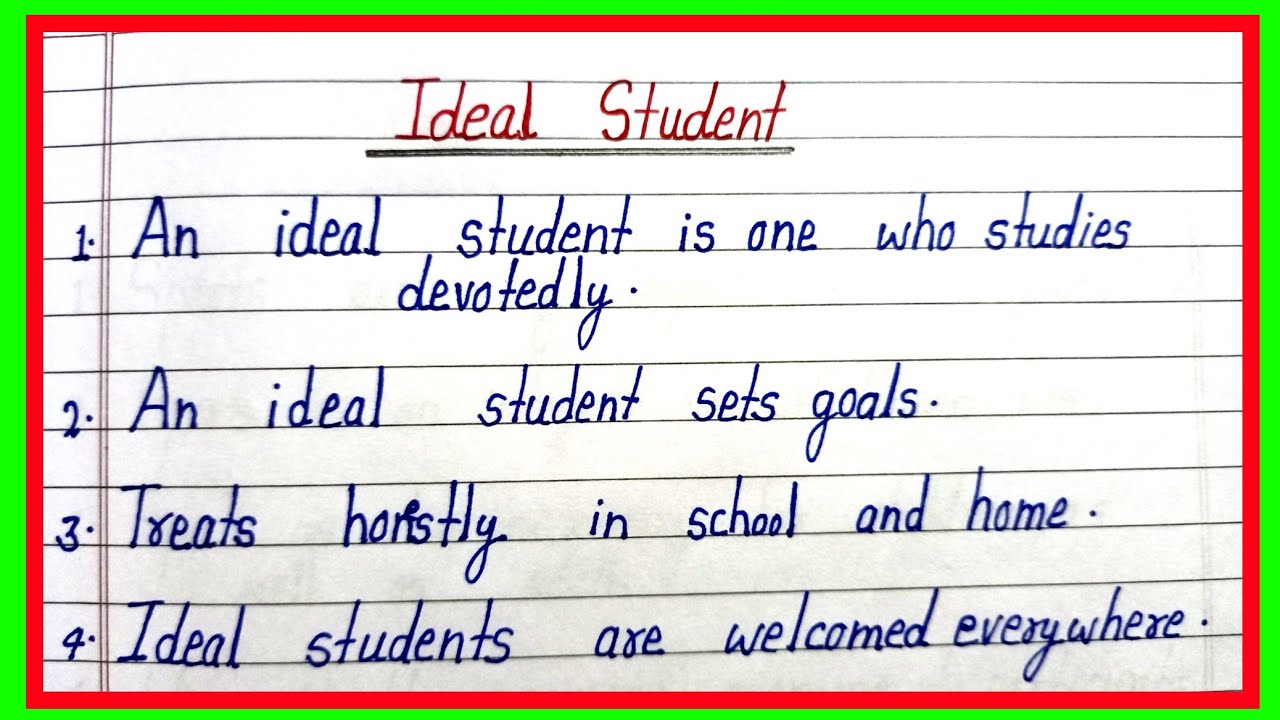 Ideal Student
1. An ideal student is one who studies
devotedly.
2. An ideal student sets goals.
3. Treats honestly in school and home.
4. Ideal students are welcomed everywhere.